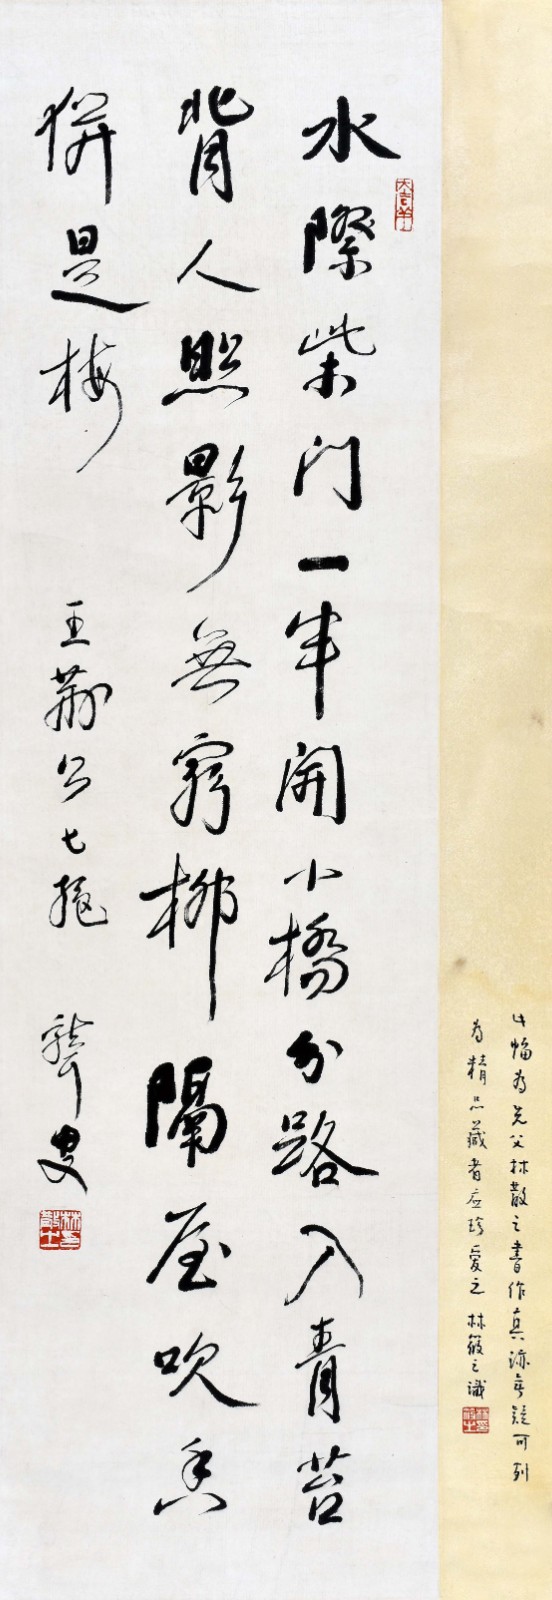 此幅为先父林散之書作真迹无疑可列
为精品藏者应珍爱之 林筱之識
水際柴門一半開小橋分路入青苔
大吉羊
背人照影無窮柳隔屋吹香
併是梅 王荊公七絕 聾叟